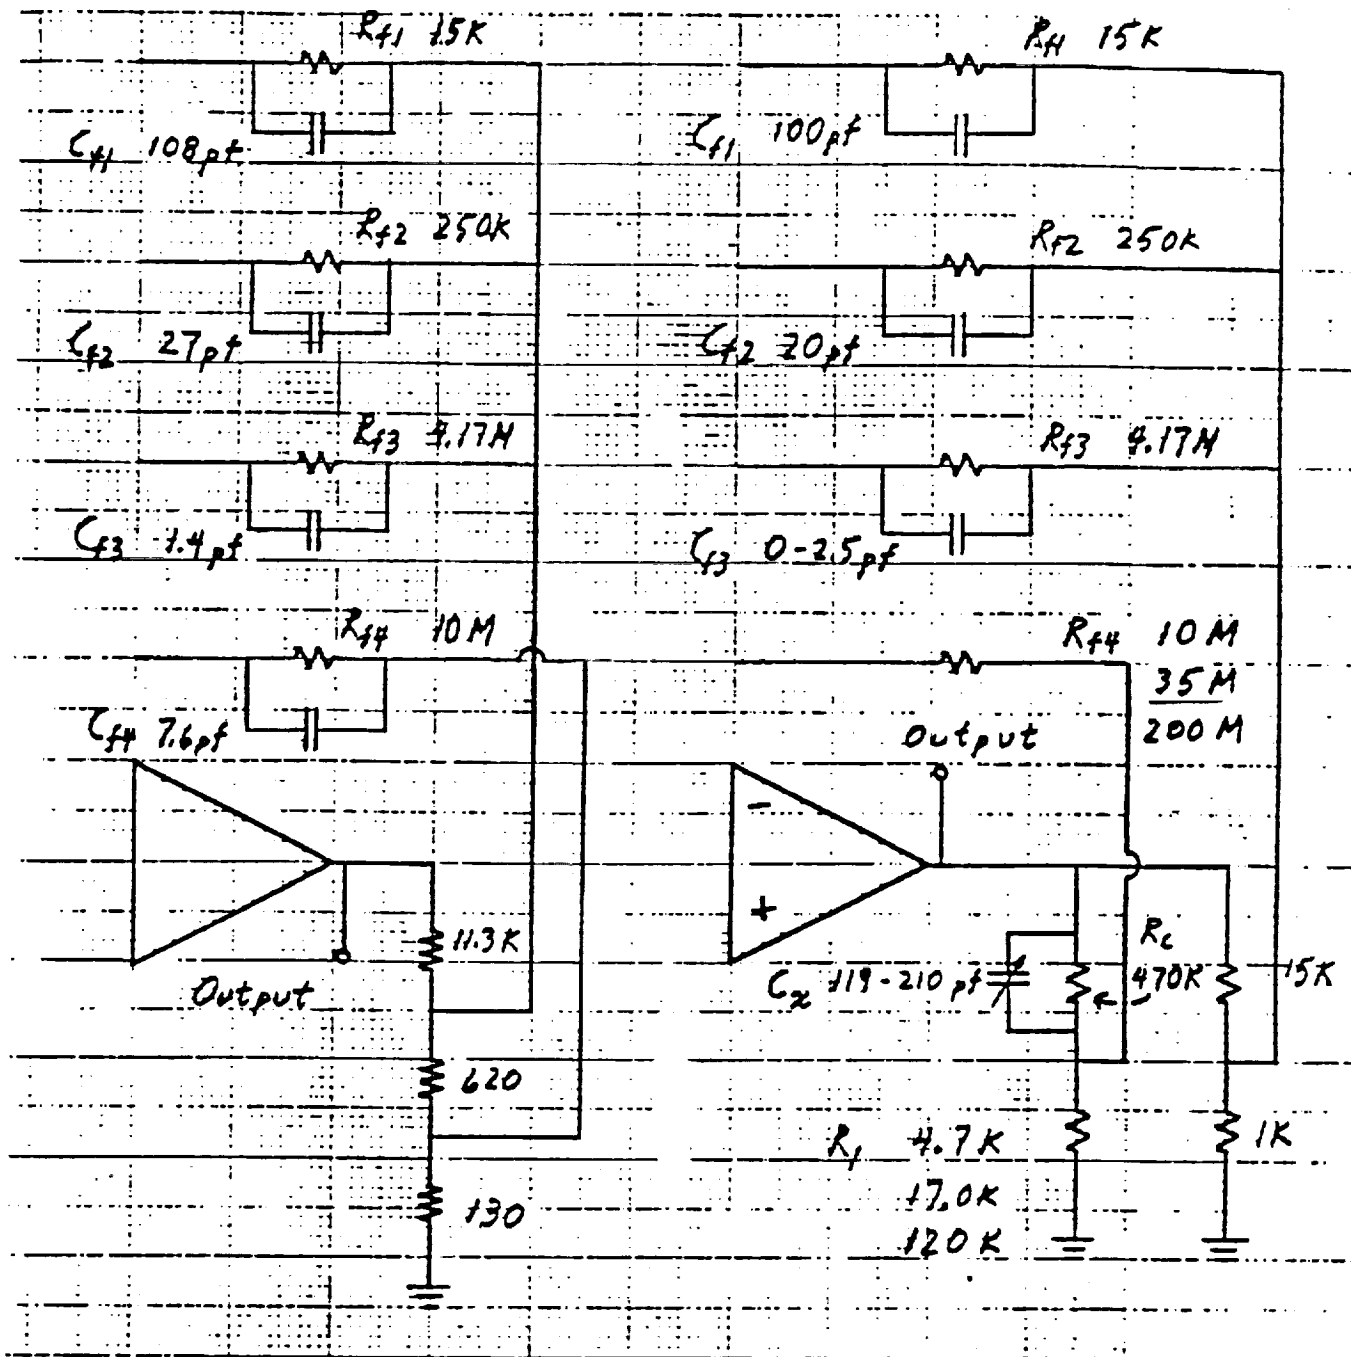 Rf1 15K
Cf1 108pf
Rf2 250K
Cf2 27pf
Rf3 4.17M
Cf3 1.4pf
Rf4 10M
Cf4 7.6pf
11.3K
Output
620
130
Rf1 15K
Cf1 100pf
Rf2 250K
Cf2 20pf
Rf3 4.17M
Cf3 0-2.5pf
Rf4 10M
35M
200M
Output
-
+
Cx 119-210 pf
Rc
470K
15K
R1 4.7K
17.0K
120K
1K